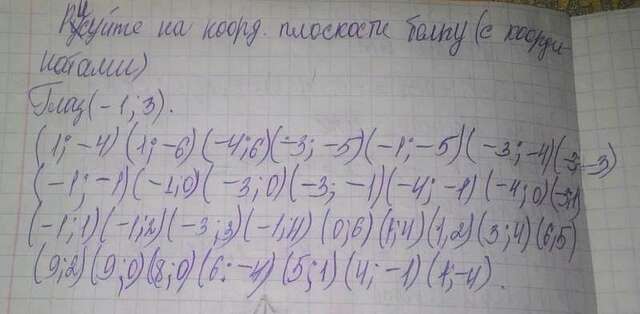 Рисуйте на коорд. плоскости белку (с коорди-
натами)
Глаз (-1; 3).
(1; -4) (1; -6) (-4; 6) (-3; -5) (-1; -5) (-3; -4) (-3; -3)
(-1; -1) (-1; 0) (-3; 0) (-3; -1) (-4; -1) (-4; 0) (-3; 1)
(-1; 1) (-1; 2) (-3; 3) (-1; 4) (0; 6) (1; 4) (1, 2) (3; 4) (6; 5)
(9; 2) (9; 0) (8; 0) (6; -4) (5; 1) (4; -1) (1; -4).